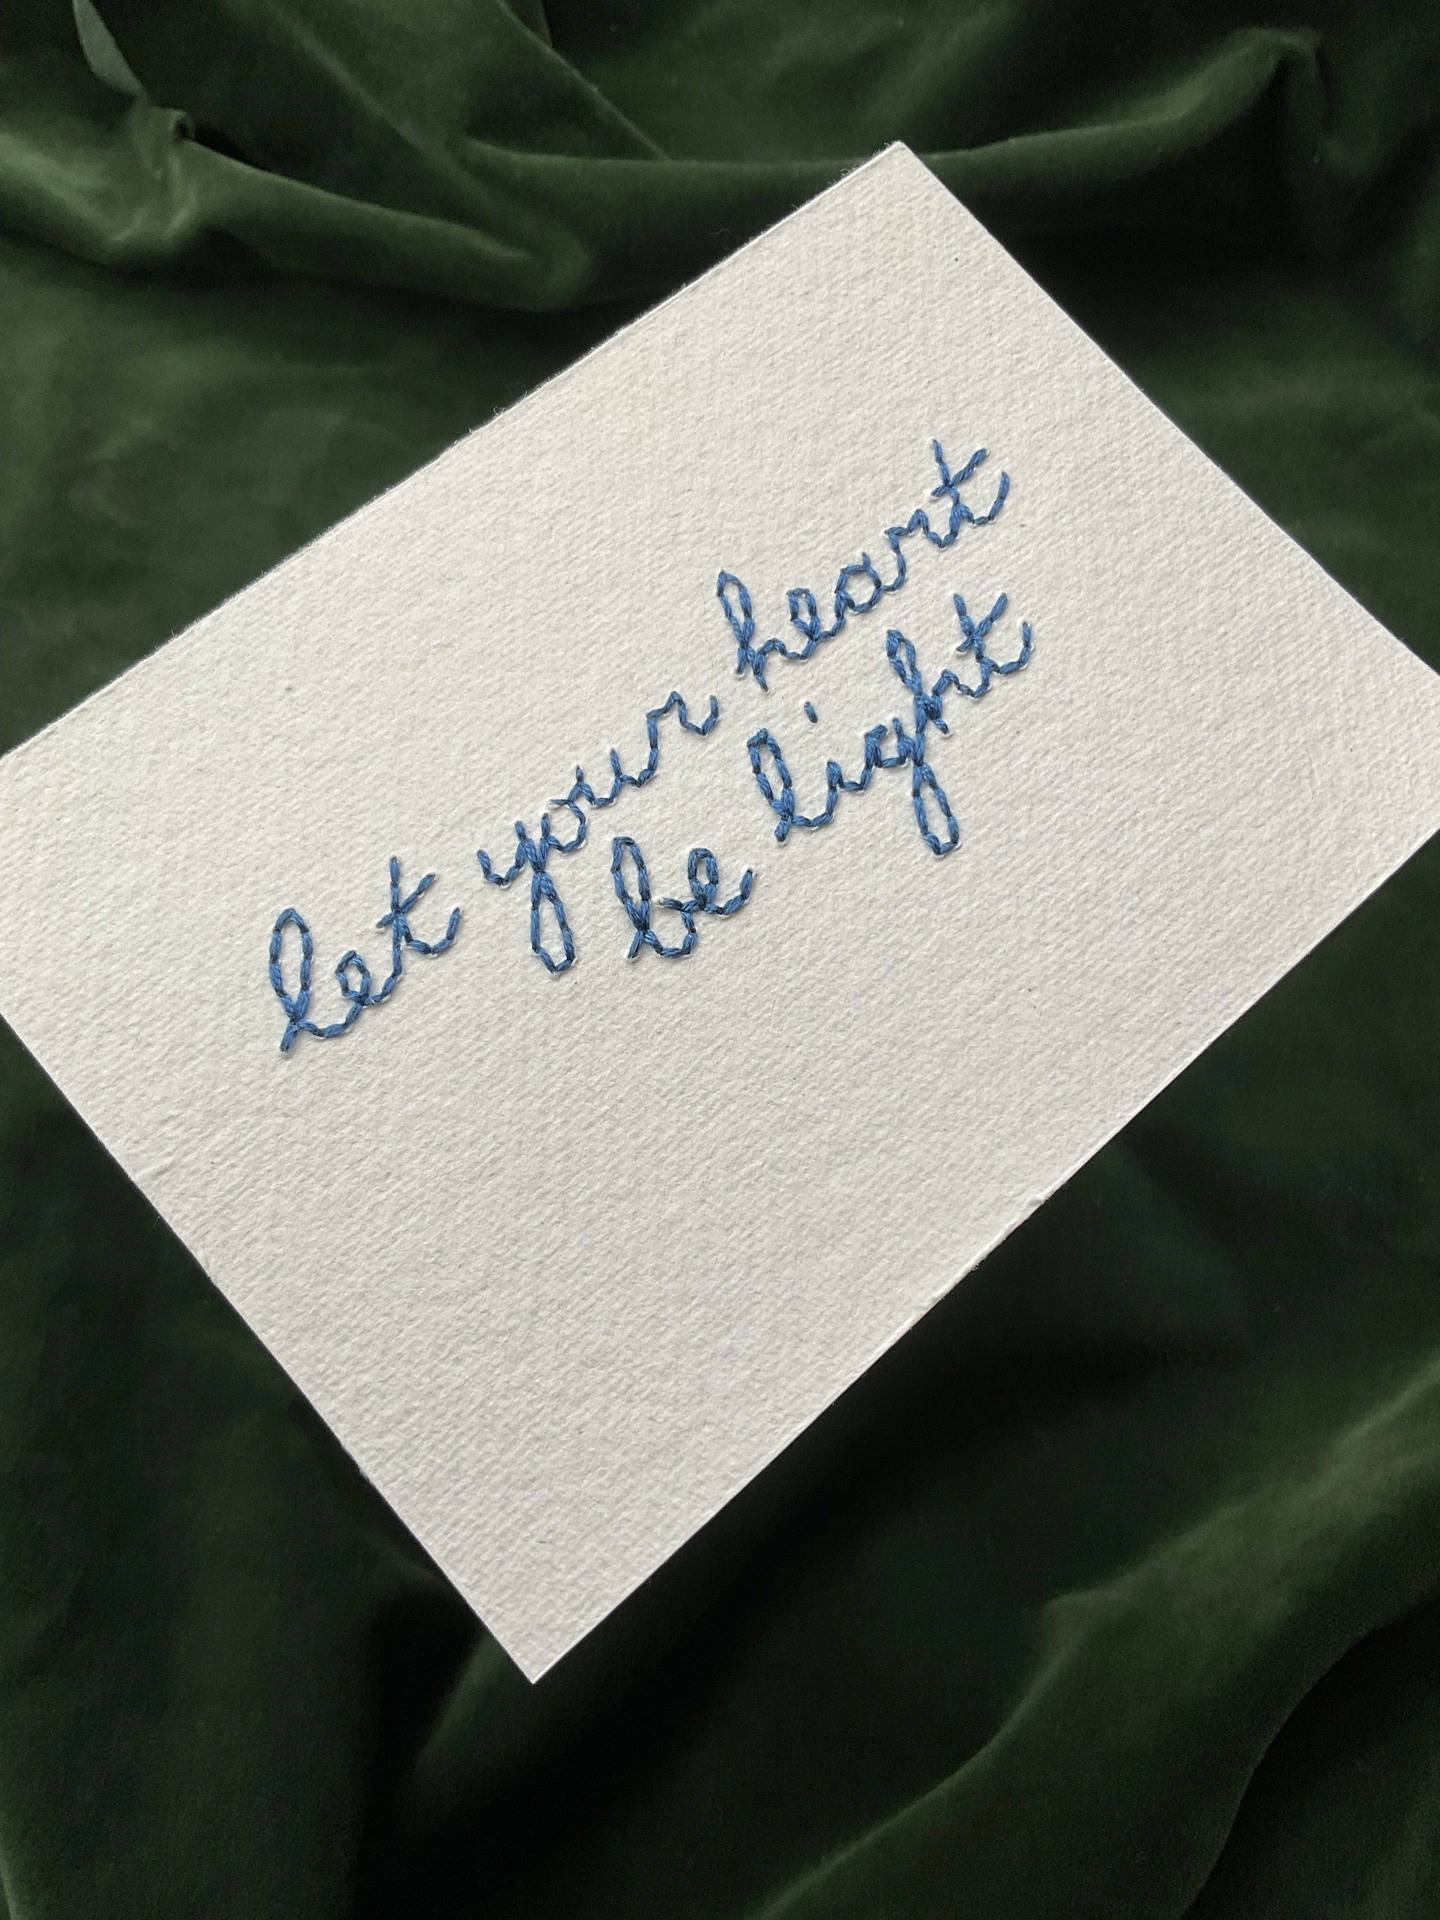 let your heart
be light